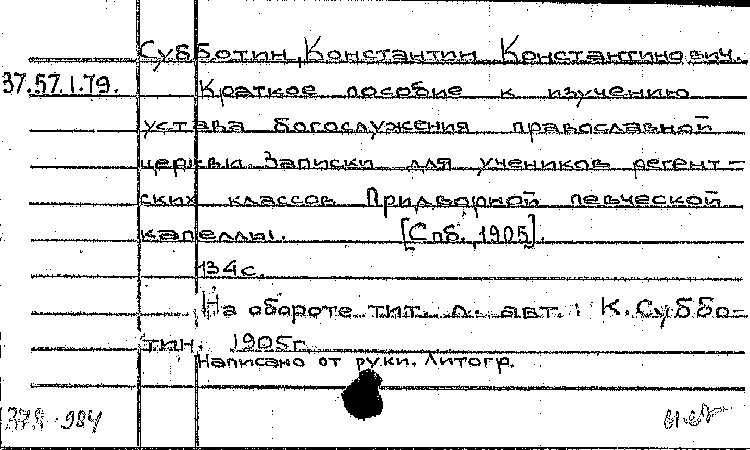 Субботин, Константин Константинович.
37.57.1.79. Краткое пособие к изучению
устава богослужения православной
церквы. Записки для учеников регент-
ских классов Придворной певческой
капеллы. [Спб., 1905].
134с.
На обороте тит. л. авт.: К. Суббо-
тин. 1905г.
Написано от руки. Литогр.